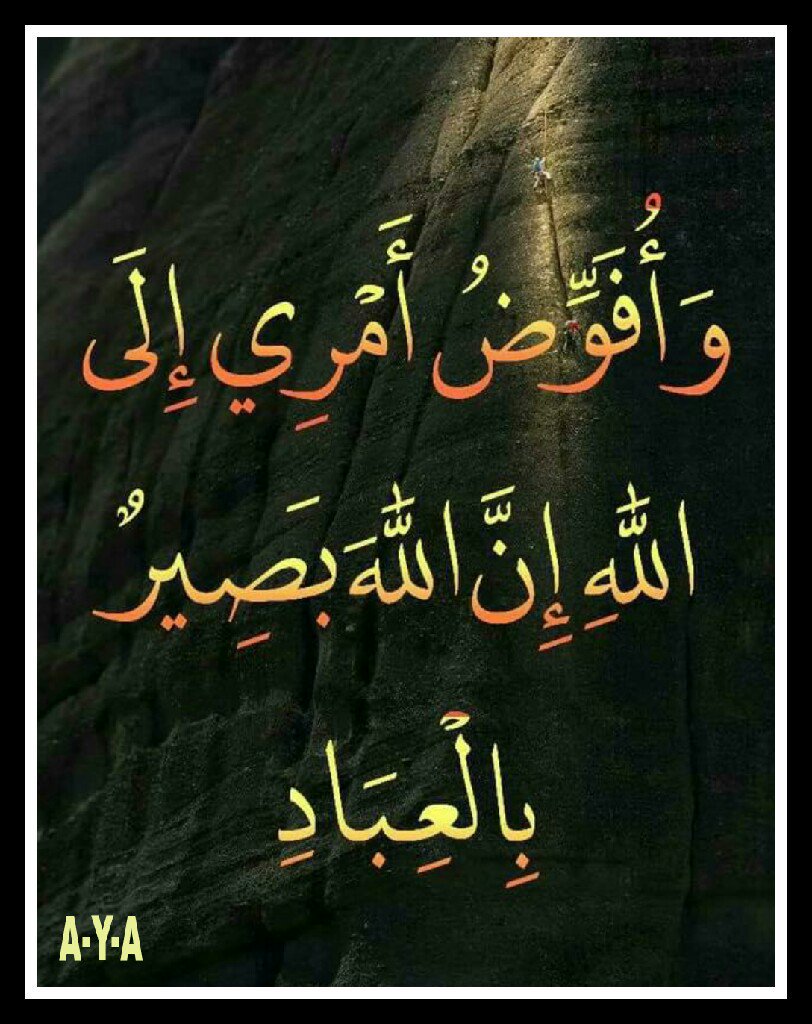 وَأُفَوِّضُ أَمْرِي إِلَى
اللَّهِ إِنَّ اللَّهَ بَصِيرٌ
بِالْعِبَادِ
A·Y·A